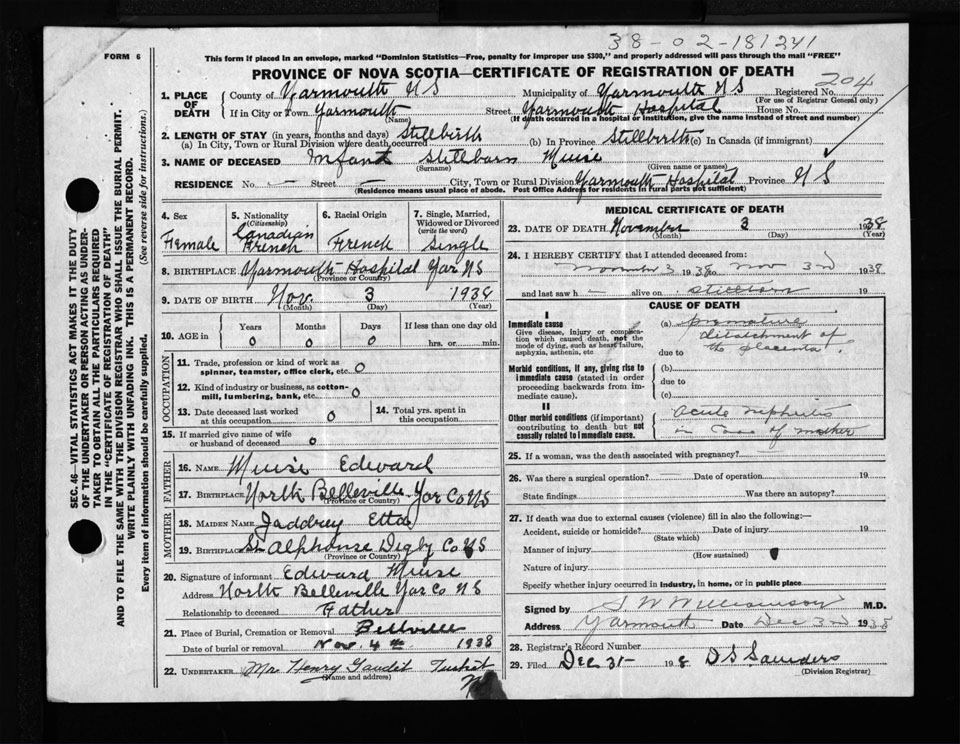 38-02-181241
FORM 6
This form if placed in an envelope, marked "Dominion Statistics—Free, penalty for improper use $300," and properly addressed will pass through the mail "FREE"
PROVINCE OF NOVA SCOTIA—CERTIFICATE OF REGISTRATION OF DEATH
SEC. 46—VITAL STATISTICS ACT MAKES IT THE DUTY
OF THE UNDERTAKER OR PERSON ACTING AS UNDER-
TAKER TO OBTAIN ALL THE PARTICULARS REQUIRED
IN THE "CERTIFICATE OF REGISTRATION OF DEATH"
AND TO FILE THE SAME WITH THE DIVISION REGISTRAR WHO SHALL ISSUE THE BURIAL PERMIT.
WRITE PLAINLY WITH UNFADING INK. THIS IS A PERMANENT RECORD.
Every item of information should be carefully supplied. (See reverse side for instructions.)
1. PLACE OF DEATH
County of Yarmouth N S Municipality of Yarmouth N S Registered No. 204
(For use of Registrar General only)
If in City or Town Yarmouth Street Yarmouth Hospital House No.
(Name) (If death occurred in a hospital or institution, give the name instead of street and number)
2. LENGTH OF STAY (in years, months and days) Stillbirth
(a) In City, Town or Rural Division where death occurred (b) In Province Stillbirth (c) In Canada (if immigrant)
3. NAME OF DECEASED Infant Stillborn Muise
(Surname) (Given name or names)
RESIDENCE No. — Street — City, Town or Rural Division Yarmouth Hospital Province N S
(Residence means usual place of abode. Post Office Address for residents in rural parts not sufficient)
4. Sex
Female
5. Nationality
(Citizenship)
Canadian
French
6. Racial Origin
French
7. Single, Married,
Widowed or Divorced
(write the word)
Single
8. BIRTHPLACE Yarmouth Hospital Yar NS
(Province or Country)
9. DATE OF BIRTH Nov. 3 1938
(Month) (Day) (Year)
10. AGE in
Years Months Days If less than one day old
0 0 0 hrs. or min.
OCCUPATION
11. Trade, profession or kind of work as
spinner, teamster, office clerk, etc. 0
12. Kind of industry or business, as cotton-
mill, lumbering, bank, etc. 0
13. Date deceased last worked
at this occupation 0
14. Total yrs. spent in
this occupation
15. If married give name of wife
or husband of deceased 0
FATHER
16. NAME Muise Edward
17. BIRTHPLACE North Belleville Yar Co NS
(Province or Country)
MOTHER
18. MAIDEN NAME Jaddrey Etta
19. BIRTHPLACE St Alphonse Digby Co NS
(Province or Country)
20. Signature of informant Edward Muise
Address North Belleville Yar Co NS
Relationship to deceased Father
21. Place of Burial, Cremation or Removal Bellville
Date of burial or removal Nov. 4th 1938
22. UNDERTAKER Mr Henry Gaudet Tusket
(Name and address)
MEDICAL CERTIFICATE OF DEATH
23. DATE OF DEATH November 3 1938
(Month) (Day) (Year)
24. I HEREBY CERTIFY that I attended deceased from:
November 3 1938 to Nov 3rd 1938
and last saw h — alive on stillborn 19
CAUSE OF DEATH
I
Immediate cause
Give disease, injury or complica-
tion which caused death, not the
mode of dying, such as heart failure,
asphyxia, asthenia, etc
(a) Premature
detatchment of
due to the placenta.
Morbid conditions, if any, giving rise to
immediate cause (stated in order
proceeding backwards from im-
mediate cause).
(b)
due to
(c)
II
Other morbid conditions (if important)
contributing to death but not
causally related to immediate cause.
acute nephritis
in case of mother
25. If a woman, was the death associated with pregnancy?
26. Was there a surgical operation? Date of operation 19
State findings Was there an autopsy?
27. If death was due to external causes (violence) fill in also the following:—
Accident, suicide or homicide? Date of injury 19
(State which)
Manner of injury
(How sustained)
Nature of injury
Specify whether injury occurred in Industry, in home, or in public place
Signed by S W Williamson M.D.
Address Yarmouth Date Dec 3rd 1938
28. Registrar's Record Number
29. Filed Dec 31— 1938 D S Saunders
(Division Registrar)